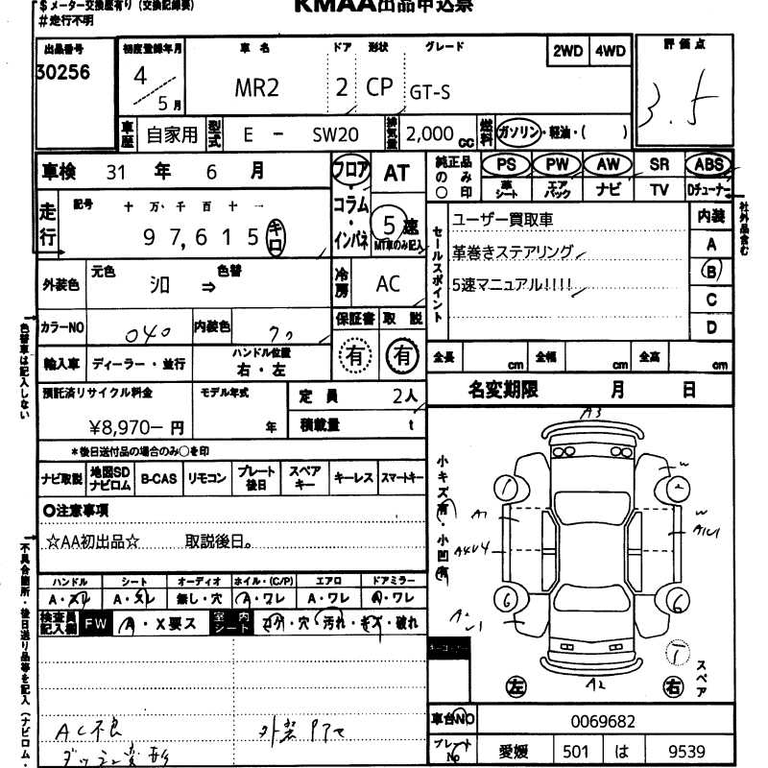 $ メーター交換歴有り(交換記録簿)
# 走行不明
KMAA出品申込票
出品番号 初度登録年月 車名 ドア 形状 グレード 2WD 4WD 評価点
30256 4/5月 MR2 2 CP GT-S 3.5
車歴 自家用 型式 E - SW20 排気量 2,000 cc 燃料 ガソリン・軽油・( )
車検 31 年 6 月 フロア AT 純正品のみ○印 PS PW AW SR ABS
革シート エアバック ナビ TV Dチューナー
社外品含む
走行 記号 十 万、千 百 十 一 ・コラム・インパネ 5速
97,615 キロ MT車のみ記入
セールスポイント ユーザー買取車 内装
革巻きステアリング A
5速マニュアル!!!! B
C
D
外装色 元色 シロ ⇒ 色替 冷房 AC
カラーNO 040 内装色 保証書 取説
色替車は記入しない
輸入車 ディーラー・並行 ハンドル位置 右・左 有 有
全長 cm 全幅 cm 全高 cm
預託済リサイクル料金 モデル年式 定員 2人
¥8,970- 円 年 積載量 t
名変期限 月 日
*後日送付品の場合のみ○を印
ナビ取説 地図SDナビロム B-CAS リモコン プレート後日 スペアキー キーレス スマートキー
○注意事項
☆AA初出品☆ 取説後日。
ハンドル シート オーディオ ホイル・(C/P) エアロ ドアミラー
A・スレ A・スレ 無し・穴 A・ワレ A・ワレ A・ワレ
検査員記入欄 FW A・X要ス 室内シート コゲ・穴 汚れ・キズ・破れ
AC不良
小キズ有・小凹有
A3
W
A1
A4U4
A2
左 右 スペア
車台NO 0069682
プレートNo 愛媛 501 は 9539